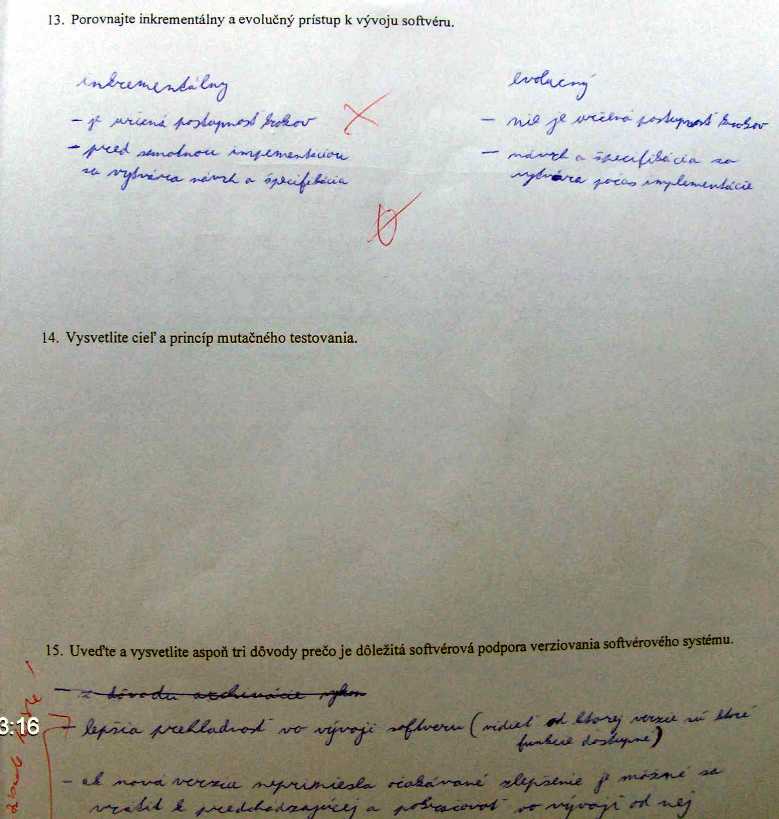 13. Porovnajte inkrementálny a evolučný prístup k vývoju softvéru.
inkrementálny
- je určená postupnosť krokov
- pred samotnou impementáciou
sa vytvára návrh a špecifikácia
evolučný
- nie je určená postupnosť krokov
- návrh a špecifikácia sa
vytvára počas implementácie
0
14. Vysvetlite cieľ a princíp mutačného testovania.
15. Uveďte a vysvetlite aspoň tri dôvody prečo je dôležitá softvérová podpora verziovania softvérového systému.
- z dôvodu archivácie
3:16
- lepšia prehladnosť vo vývoji softveru (vidieť od ktorej verzie sú ktoré
funkcie dostupné)
- ak nová verzia nepriniesla očakávané zlepšenie je možné sa
vrátiť k predchádzajúcej a pokračovať vo vývoji od nej